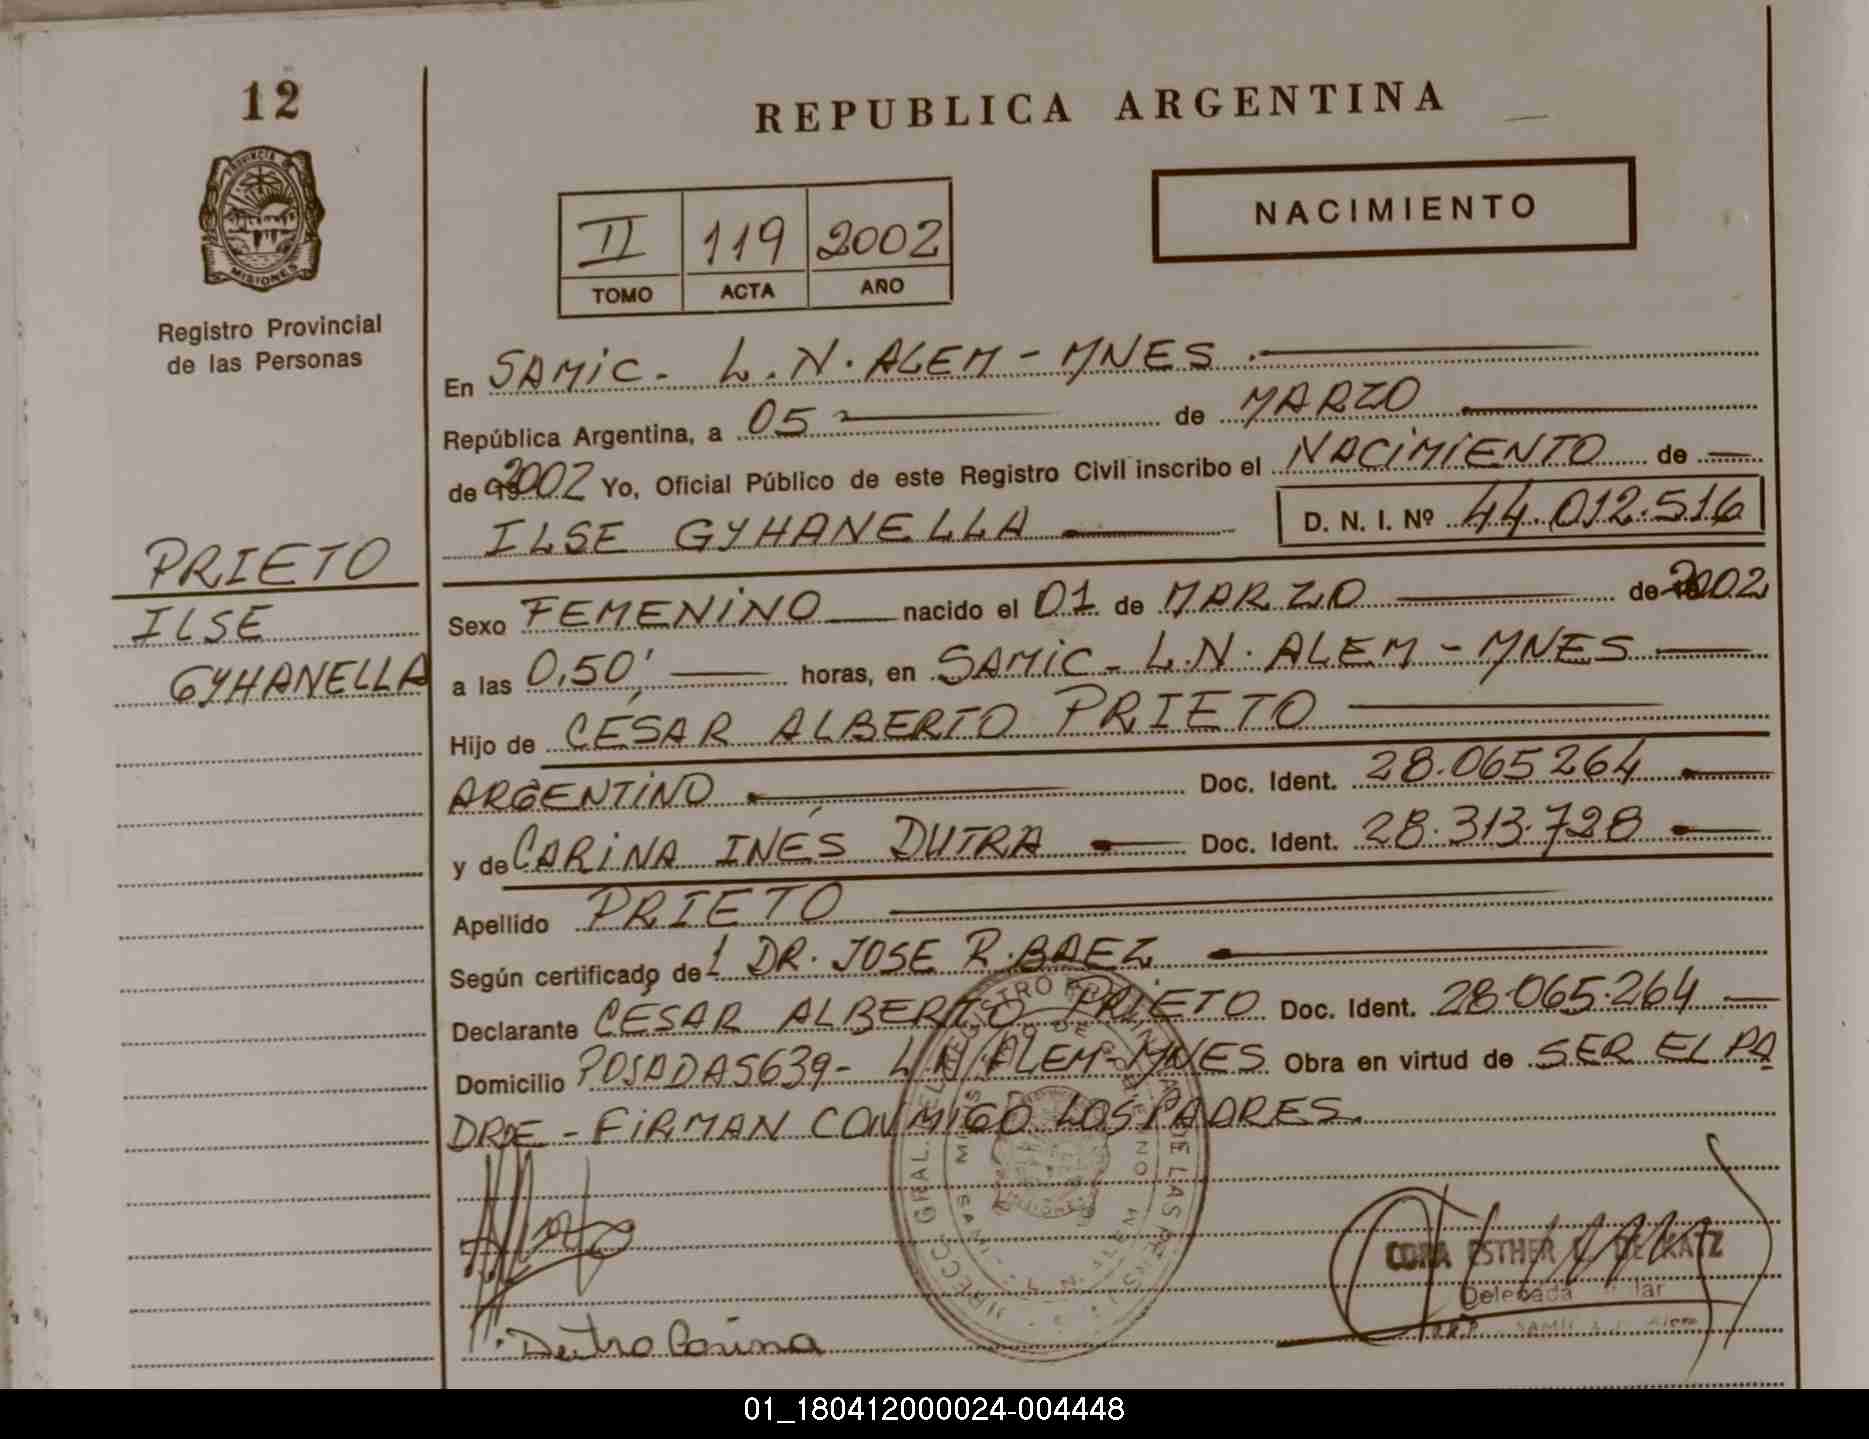 12
REPUBLICA ARGENTINA
PROVINCIA DE
MISIONES
NACIMIENTO
II 119 2002
TOMO ACTA AÑO
Registro Provincial
de las Personas
En SAMIC - L.N. ALEM - MNES.
República Argentina, a 05 de MARZO
de 2002 Yo, Oficial Público de este Registro Civil inscribo el NACIMIENTO de
ILSE GYHANELLA D. N. I. Nº 44.012.516
PRIETO
ILSE
GYHANELLA
Sexo FEMENINO nacido el 01 de MARZO de 2002
a las 0,50' horas, en SAMIC - L.N. ALEM - MNES
Hijo de CÉSAR ALBERTO PRIETO
ARGENTINO Doc. Ident. 28.065264
y de CARINA INÉS DUTRA Doc. Ident. 28.313.728
Apellido PRIETO
Según certificado del DR. JOSE R. BAEZ
Declarante CÉSAR ALBERTO PRIETO Doc. Ident. 28.065.264
Domicilio POSADAS 639 - L.N. ALEM - MNES Obra en virtud de SER EL PA
DRE - FIRMAN CONMIGO LOS PADRES.
CORA ESTHER DE KATZ
Delegada
Dutra Carina
01_180412000024-004448